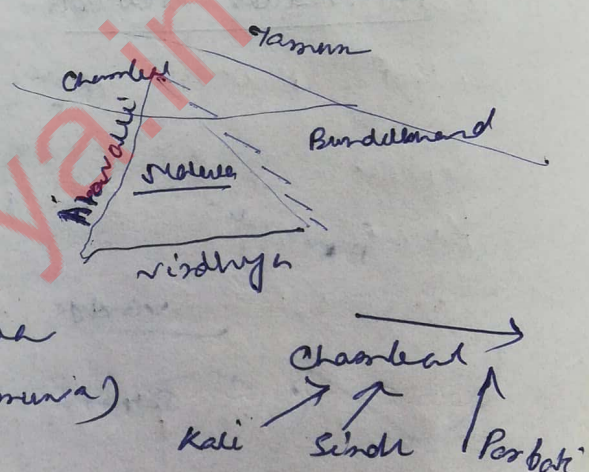 Yamuna
Chambal
Bundelkhand
Aravalli
Malwa
Vindhya
Chambal
Kali Sindh Parbati
ya.in